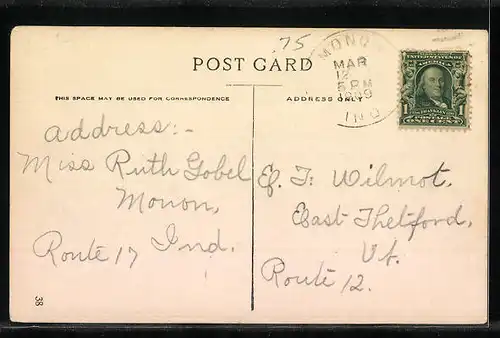 75
POST CARD
MONON
MAR
12
5 PM
1909
IND.
UNITED STATES OF AMERICA
FRANKLIN
POSTAGE
1 ONE CENT 1
THIS SPACE MAY BE USED FOR CORRESPONDENCE
ADDRESS ONLY
address:-
Miss Ruth Gobel
Monon,
Ind.
Route 17
E. F. Wilmot,
East Thetford,
Vt.
Route 12.
38